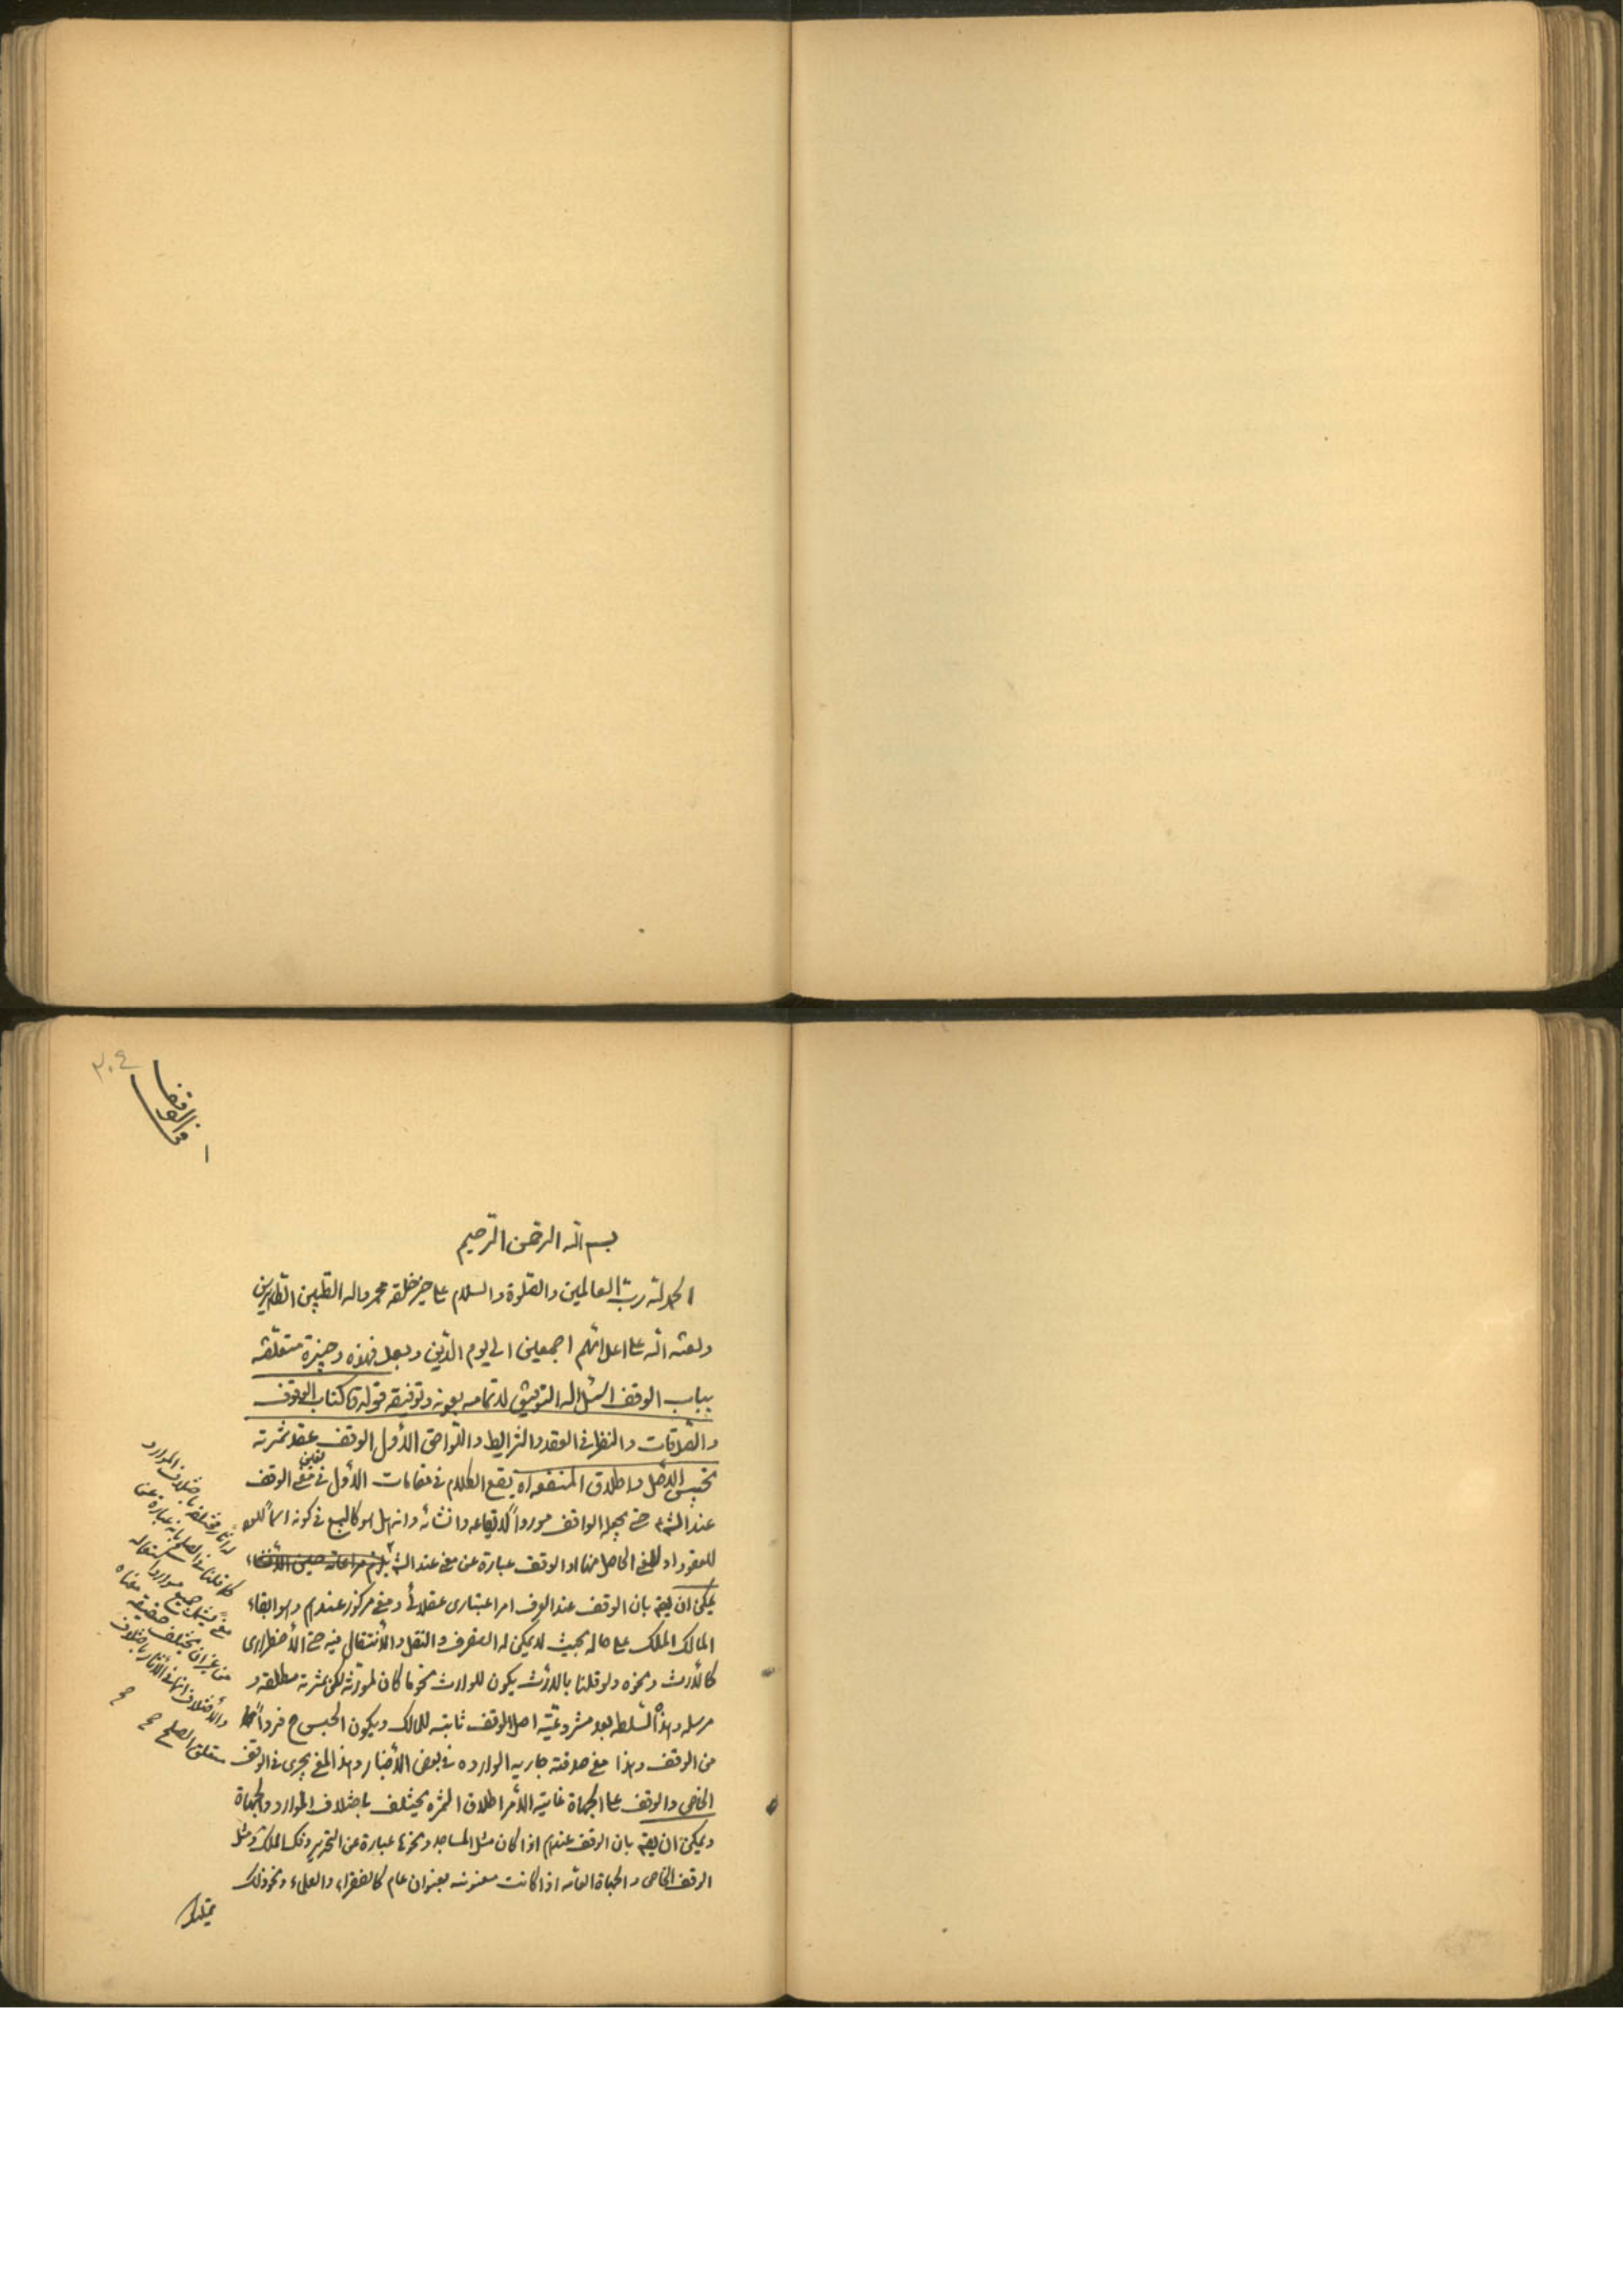 ٢٠٤
في الوقف
١
بسم الله الرحمن الرحيم
الحمد لله رب العالمين والصلوة والسلام على خير خلقه محمد واله الطيبين الطاهرين
ولعنة الله على اعدائهم اجمعين الى يوم الدين وبعد فهذه وجيزة متعلقة
بباب الوقف اسئل الله التوفيق لاتمامه بعونه وتوفيقه قوله كتاب الوقوف
والصدقات والنظر في العقد والشرايط واللواحق الأول الوقف عقد ثمرته
تحبيس الأصل واطلاق المنفعه اه يقع الكلام في مقامات الأول في تعيين معنى الوقف
عند الشرع حتى يجعله الواقف موردا لايقاعه وانشائه وانه هل هو كالبيع في كونه اسماً
للعقود او للمعنى الحاصل منها او الوقف عبارة عن معنى عند
يمكن ان يقه بان الوقف عند العرف امر اعتبارى عقلائى ومعنى مركوز عندهم وهو ابقاء
المالك الملك على حاله بحيث لا يمكن له التصرف والنقل والأنتقال فيه حتى الأضطرارى
كالأرث ونحوه ولو قلنا بالأرث يكون للوارث نحو ما كان لمورثه لكن ثمرته مطلقه و
مرسله وهذه السلطه بعد مشروعية اصل الوقف ثابته للمالك ويكون الحبس ح فرداً
من الوقف وهذا معنى صدقة جاريه الوارده في بعض الأخبار وهذا المعنى يجرى في الوقف
الخاص والوقف على الجهاة غاية الأمر اطلاق الثمره يختلف باختلاف الموارد والجهاة
ويمكن ان يقه بان الوقف عندهم اذا كان مثل المساجد ونحوها عبارة عن التحرير وفك الملك ومثل
الوقف الخاص والجهاة العامه اذا كانت معنونه بعنوان عام كالفقراء والعلماء ونحو ذلك
تمليك
مختلفه باختلاف الموارد
كما قلنا في الصلح بانه عبارة عن
معنى جميع موارد استعماله
من غير ان يختلف حقيقة معناه
والأختلاف انما في الأثار باختلاف
متعلق الصلح صح